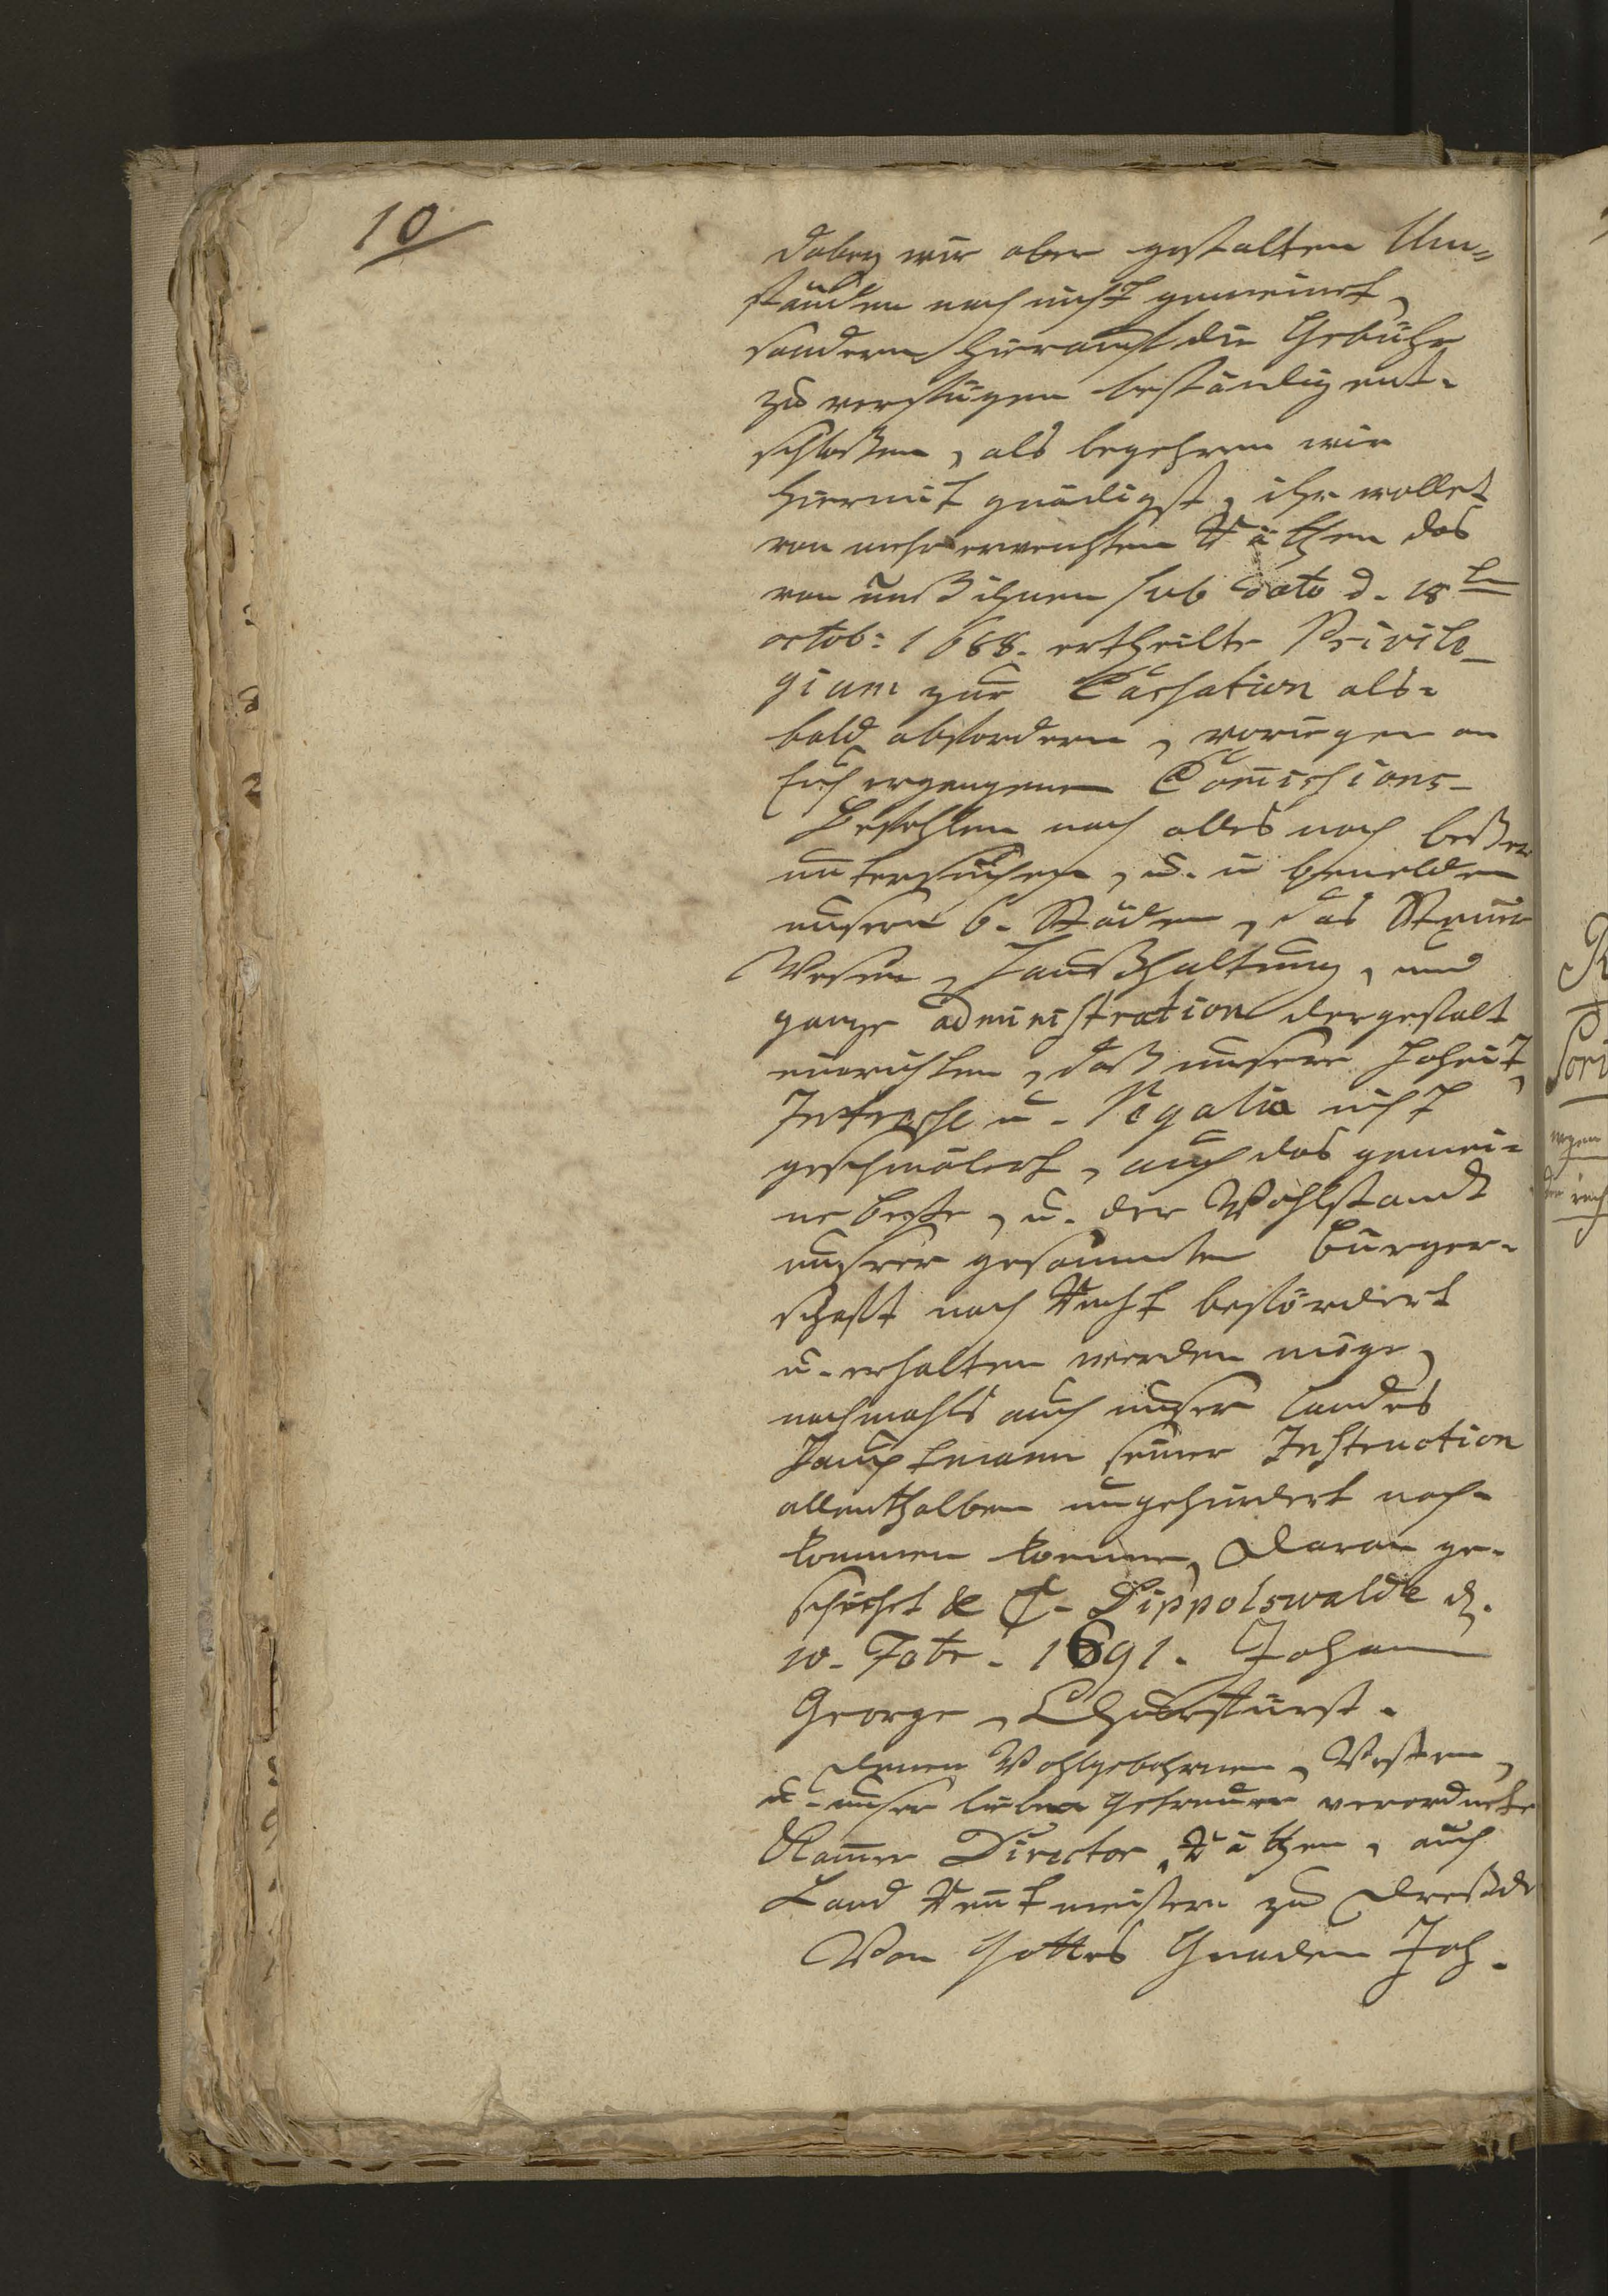 10
dabey wir aber gestalten Um-
ständen nach nicht gemeinet,
sondern hierauf die Gebühr
zu verfügen beständig ent-
schloßen, als begehren wir
hiermit gnädigst, ihr wollet
von mehrerwenhten Räthen das
von unß ihnen sub dato d. 18
octob: 1688. ertheilte Privile-
gium zur Cassation als-
bald abfordern, vorigen an
Euch ergangenen Com̄issions-
Befehlen nach alles noch beßer
untersuchen, u. in bemelden
unsern 6. Städen, das Steuer
Wesen, Haußhaltung, und
gantze administration dergestalt
einrichten, daß unsere Hoheit,
Interesse u. Regalia nicht
geschmälert, auch das gemei-
ne beste, u. der Wohlstandt
unsrer gesammten Bürger-
schafft nach Recht befördert
u. erhalten werden möge,
nachmahls auch unser Landes
Hauptmann seiner Instruction
allenthalben ungehindert nach-
kommen koenne, Daran ge-
schiehet &c. Dippolswalde d.
10. Febr. 1691. Johann
George, Churfürst.
Denen Wohlgebohrnen, Vesten,
u. unser lieben Getreuen verordnete
Kam̄er Director, Räthen, auch
Land Rentmeistern zu Dreßde
Von Gottes Gnaden Joh.